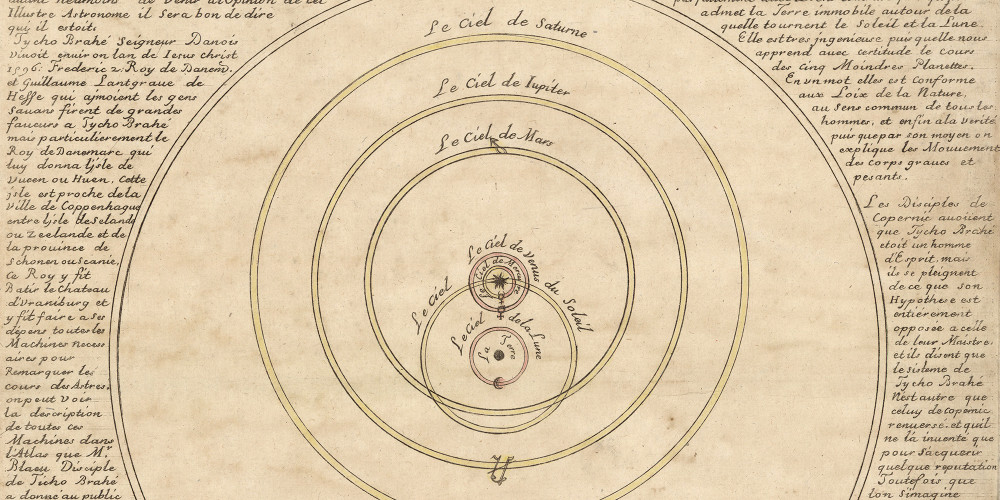 Illustre Astronome il Sera bon de dire
qui il estoit.
Tycho Brahé Seigneur Danois
vivoit environ lan de Iesus christ
1596. Frederic 2. Roy de Danem.
et Guillaume Lantgrave de
Hesse qui aymoient les gens
Savans firent de grandes
faveurs a Tycho Brahé
mais particulierement le
Roy de Danemarc qui
luy donna l'jsle de
vueen ou Huen. Cette
jsle est proche de la
ville de Coppenhague
entre l'jsle de Seland
ou Zeelande et de
la province de
Schonen ou Scanie.
Ce Roy y fit
Batir le Chateau
d'Vraniburg et
y fit faire a ses
depens toutes les
Machines necess
aires pour
Remarquer les
cours des Astres.
on peut voir
la description
de toutes ces
Machines dans
l'Atlas que Mr.
Blaeu Disciple
de Ticho Brahé
a donné au public
Le Ciel de Saturne
Le Ciel de Iupiter
Le Ciel de Mars
Le Ciel de Venus
Le Ciel de Mercure
Le Ciel du Soleil
Le Ciel de la Lune
La Terre
admet la Terre immobile autour de la
quelle tournent le Soleil et la Lune.
Elle est tres jngenieuse puis quelle nous
apprend avec certitude le cours
des Cinq Moindres Planettes.
En un mot elles est conforme
aux Loix de la Nature,
au Sens commun de tous les
hommes, et enfin a la verité
puis que par son moyen on
explique les Mouvemens
des corps graves et
pesants.
Les Disciples de
Copernic avoient
que Tycho Brahé
etoit un homme
d'Esprit, mais
ils se pleignent
de ce que son
Hypothese est
entierement
opposée a celle
de leur Maistre,
et ils disent que
le sisteme de
Tycho Brahé
Nest autre que
celuy de copernic
renverse, et quil
ne la invente que
pour s'acquerir
quelque reputation
Toutefois que
lon s'imagine